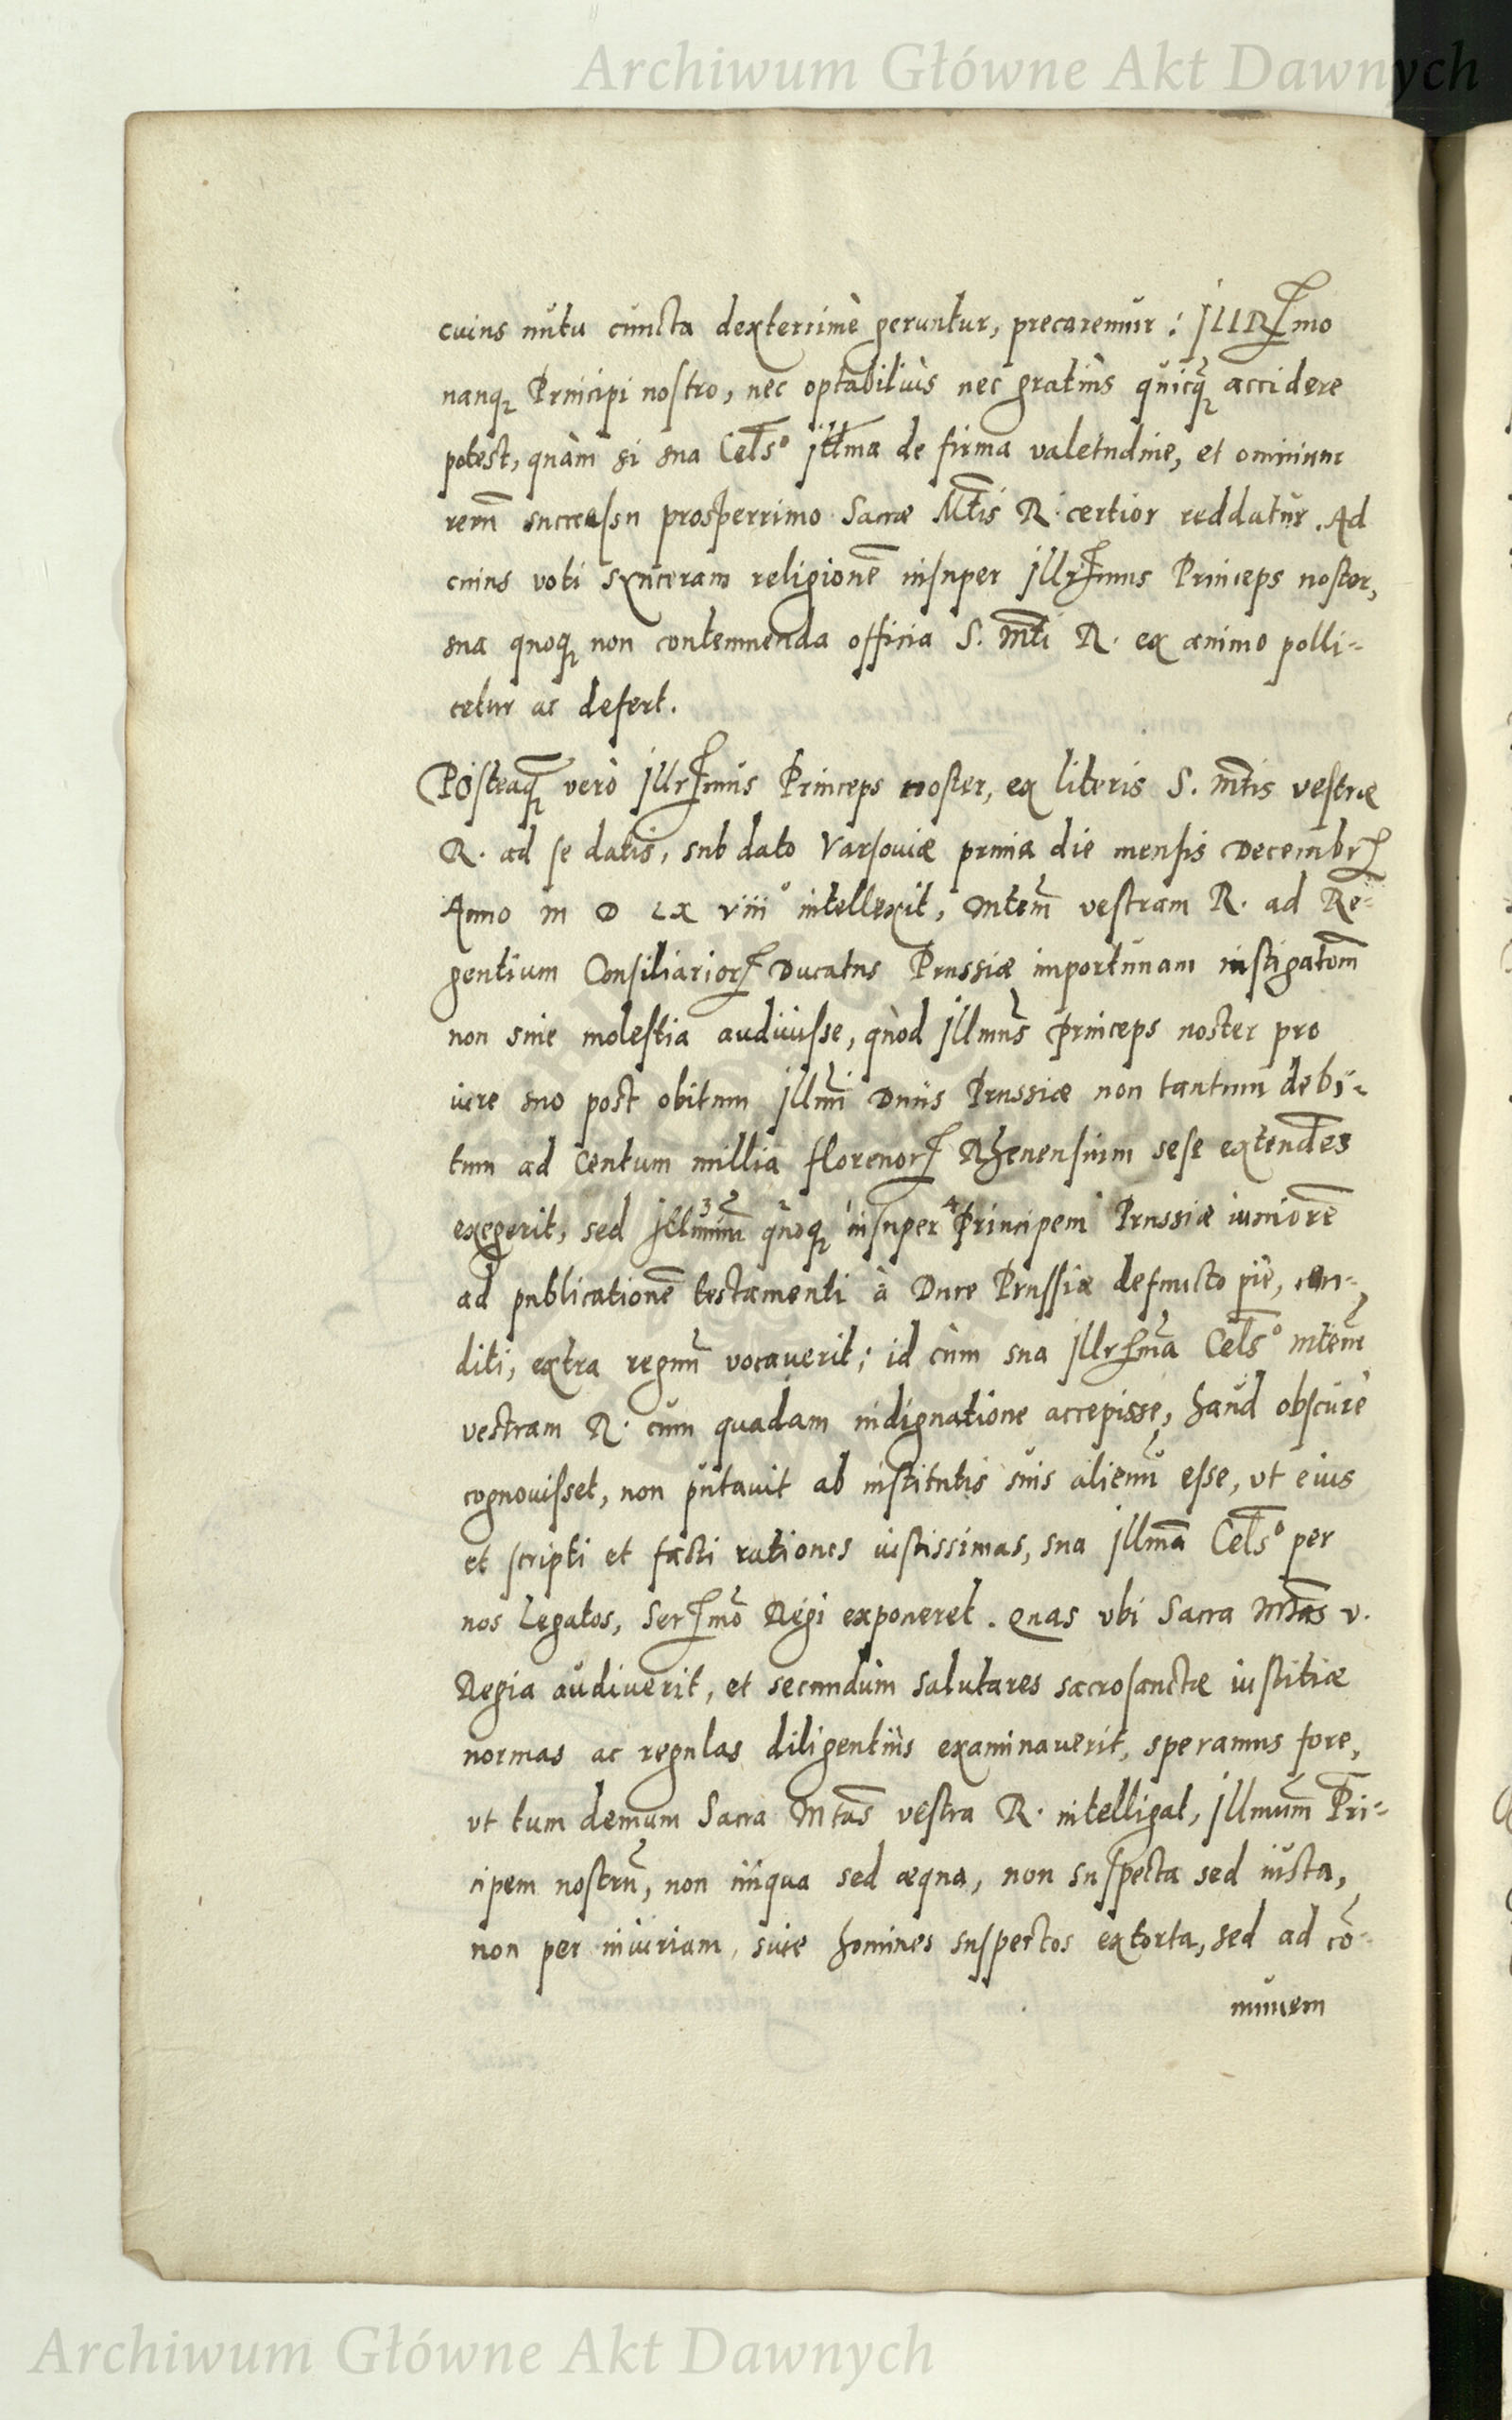 Archiwum Główne Akt Dawnych
cuius nutu cuncta dexterrimè geruntur, precaremur: JLLRmo
nanq; Principi nostro, nec optabiliùs nec gratiùs quicq; accidere
potest, quàm si sua Cels° jllma de firma valetudine, et omnium
rerū successu prosperrimo Sacræ Mtis R. certior reddatur. Ad
cuius voti synceram religionē insuper jllrmus Princeps noster,
sua quoq; non contemnenda officia S. Mti R. ex animo polli-
cetur ac defert.
Posteaq̃ verò jllrmus Princeps noster, ex literis S. Mtis vestræ
R. ad se datis, sub dato Varsouiæ prima die mensis Decembr
Anno M D LX viii° intellexit, Mtem vestram R. ad Re-
gentium Consiliarior Ducatus Prussiæ importunam instigatōm
non sine molestia audiuisse, quòd jllmus Princeps noster pro
iure suo post obitum jllmi Duiis Prussiæ non tantum debi-
tum ad Centum millia florenor Rhenensium sese extendēs
exegerit, sed jllmum quoq; insuper Principem Prussiæ iuniorē
ad publicationē testamenti à Duce Prussiæ defuncto piè, con-
diti, extra regnū vocauerit; id cùm sua jllrma Cels° Mtem
vestram R. cum quadam indignatione accepisse, haud obscurè
cognouisset, non putauit ab institutis suis alienū esse, vt eius
et scripti et facti rationes iustissimas, sua jllmā Cels° per
nos Legatos, Sermo Regi exponeret. Quas vbi Sacra Mtas v.
Regia audiuerit, et secundùm salutares sacrosanctæ iustitiæ
normas ac regulas diligentiùs examinauerit, speramus fore,
vt tum demum Sacra Mtas vestra R. intelligat, jllmum Pri-
cipem nostrū, non iniqua sed æqua, non suspecta sed iusta,
non per iniuriam, siue homines suspectos extorta, sed ad cō-
munem
Archiwum Główne Akt Dawnych